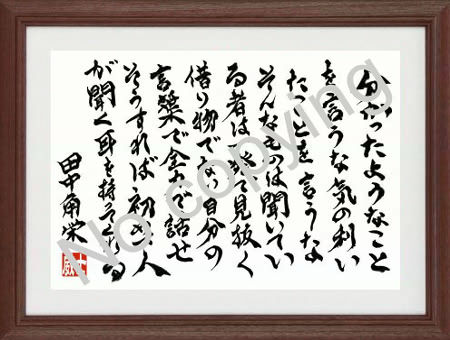 分かったようなこと
を言うな気の利い
たことを言うな
そんなものは聞いてい
る者は一発で見抜く
借り物でない自分の
言葉で全力で話せ
そうすれば初めて人
が聞く耳を持ってくれる
田中角栄
No copying